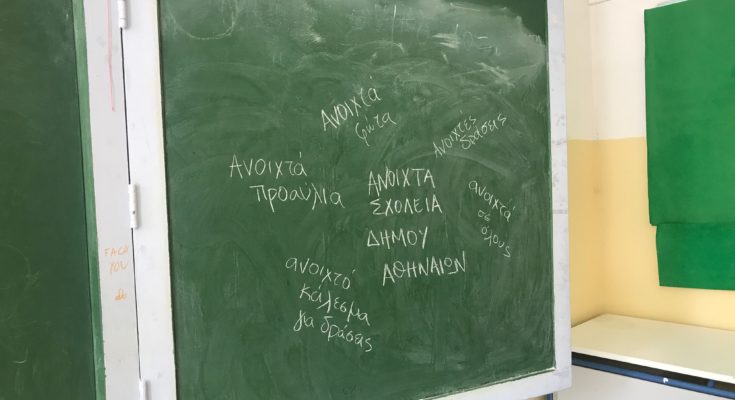 Ανοιχτά
φώτα
Ανοιχτές
δράσεις
Ανοιχτά
προαύλια
ΑΝΟΙΧΤΑ
ΣΧΟΛΕΙΑ
ΔΗΜΟΥ
ΑΘΗΝΑΙΩΝ
ανοιχτά
σε
όλους
ανοιχτό
κάλεσμα
για δράσεις
FACK
YOU